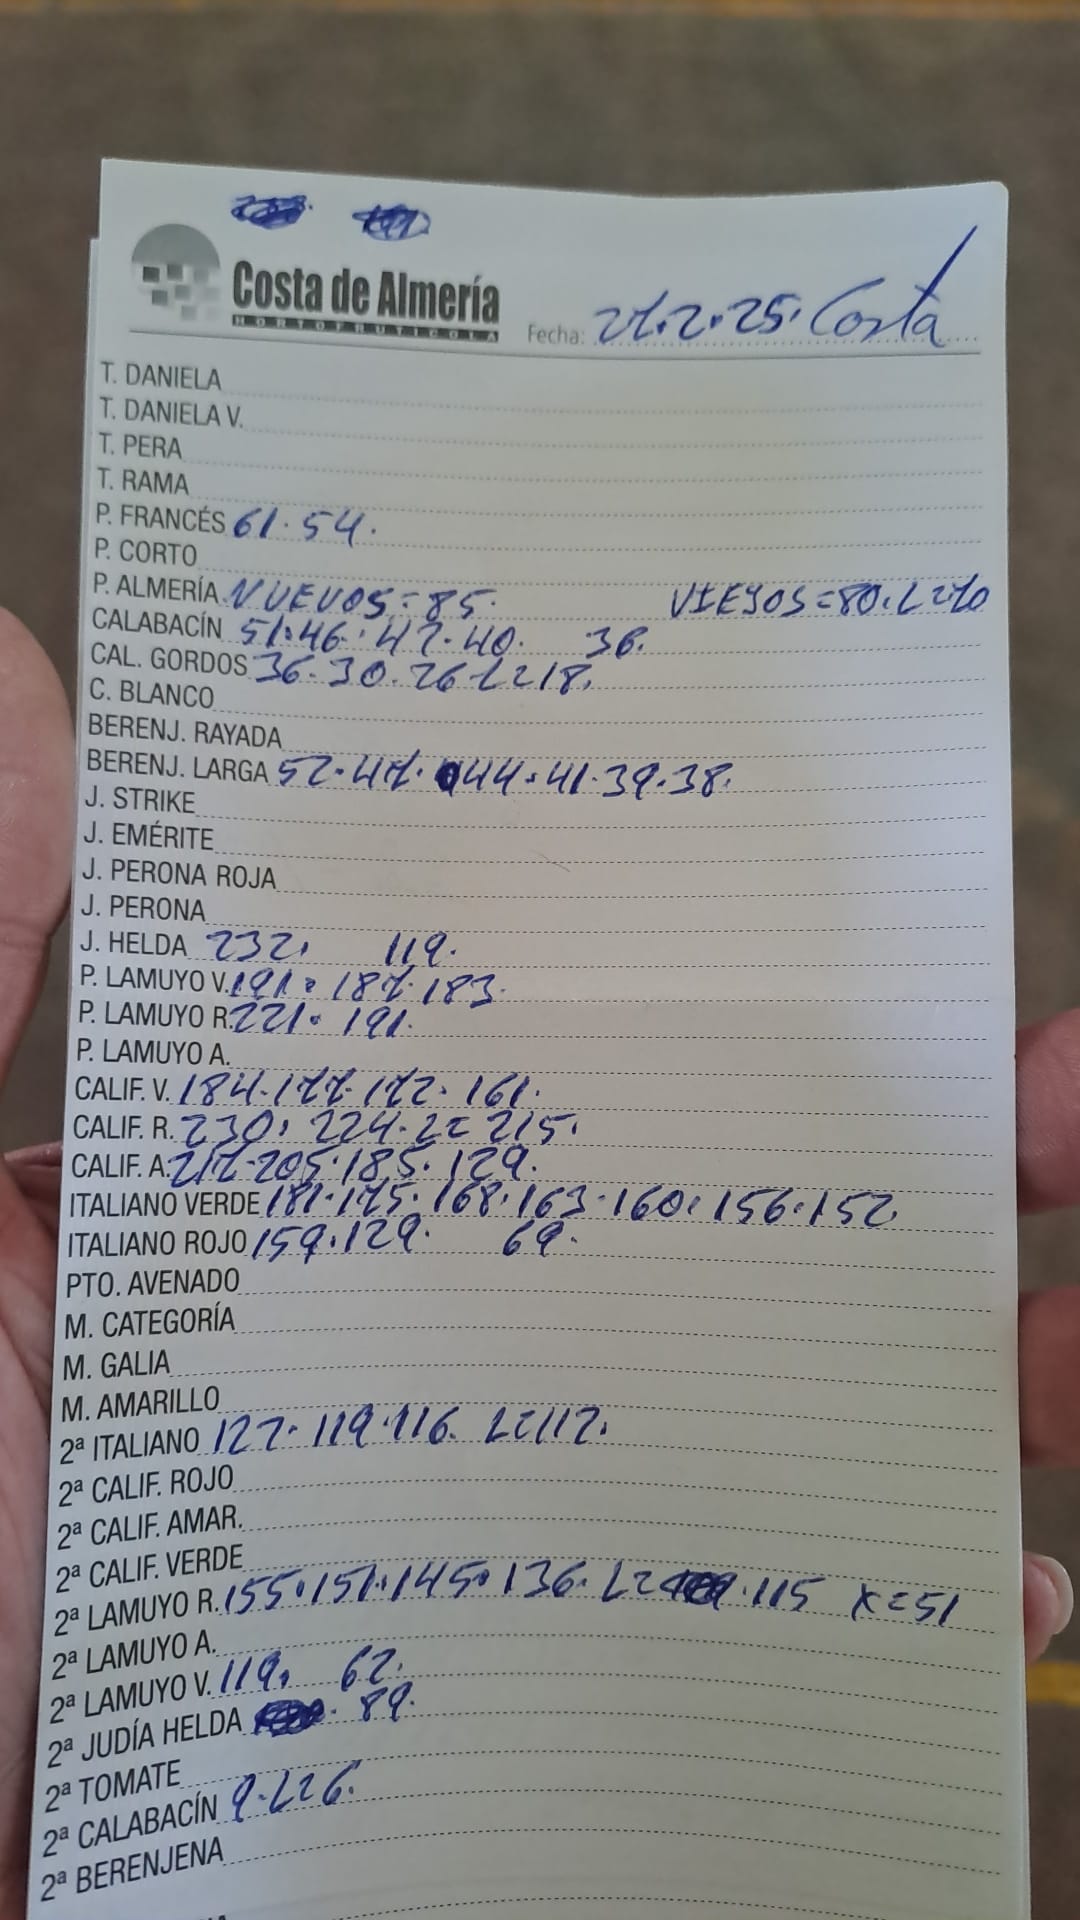 Costa de Almería
HORTOFRUTICOLA
Fecha: 27.2.25. Costa
T. DANIELA
T. DANIELA V.
T. PERA
T. RAMA
P. FRANCÉS 61. 54.
P. CORTO
P. ALMERÍA NUEVOS=85. VIEJOS=80. L=70
CALABACÍN 51. 46. 42. 40. 36.
CAL. GORDOS 36. 30. 26 L=18.
C. BLANCO
BERENJ. RAYADA
BERENJ. LARGA 52. 47. 44. 41. 39. 38.
J. STRIKE
J. EMÉRITE
J. PERONA ROJA
J. PERONA
J. HELDA 232. 119.
P. LAMUYO V. 191. 187. 183.
P. LAMUYO R. 221. 191.
P. LAMUYO A.
CALIF. V. 184. 177. 172. 161.
CALIF. R. 230. 224. L= 215.
CALIF. A. 217. 205. 185. 129.
ITALIANO VERDE 181. 175. 168. 163. 160. 156. 152.
ITALIANO ROJO 159. 129. 69.
PTO. AVENADO
M. CATEGORÍA
M. GALIA
M. AMARILLO
2ª ITALIANO 127. 119. 116. L=112.
2ª CALIF. ROJO
2ª CALIF. AMAR.
2ª CALIF. VERDE
2ª LAMUYO R. 155. 151. 145. 136. L= 115 X=51
2ª LAMUYO A.
2ª LAMUYO V. 119. 62.
2ª JUDÍA HELDA 89.
2ª TOMATE
2ª CALABACÍN 9. L=6.
2ª BERENJENA